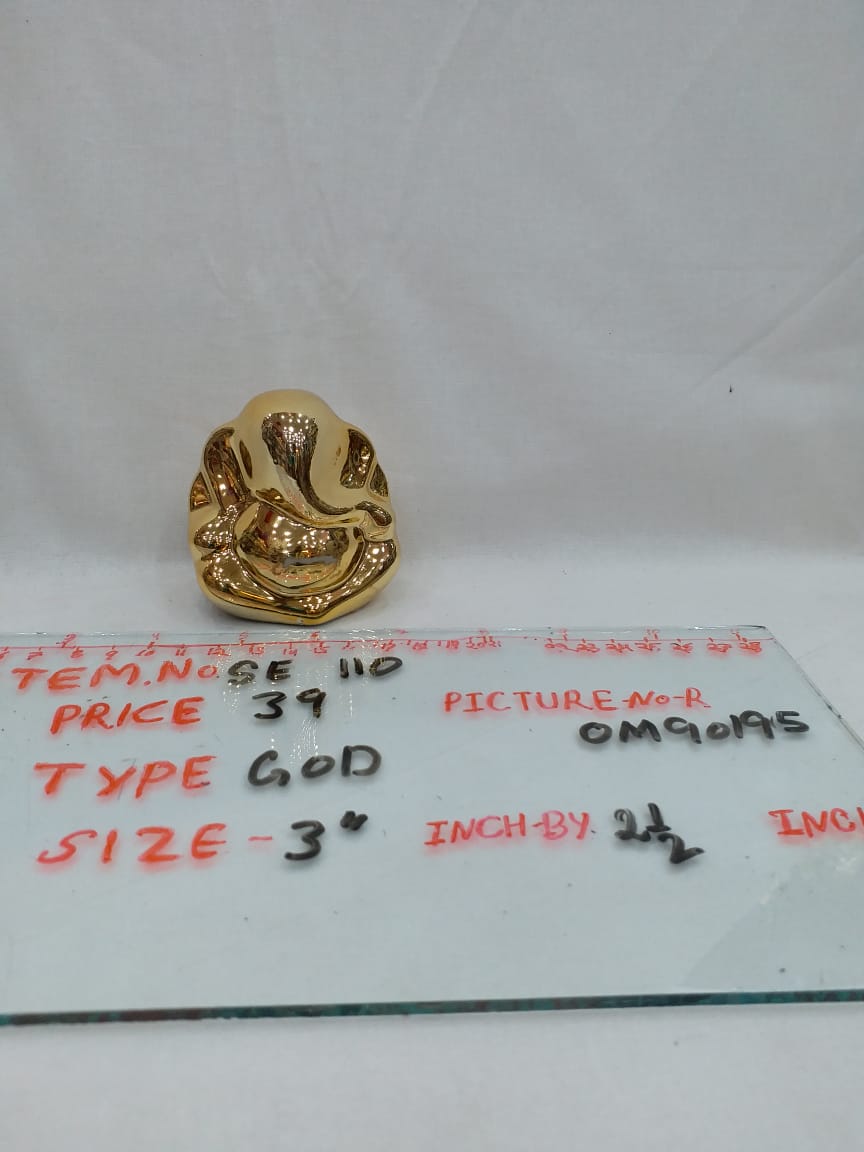 TEM.No. SE 110
PRICE 39
PICTURE-No-R
OM90195
TYPE GOD
SIZE - 3" INCH-BY. 2 1/2 INCH